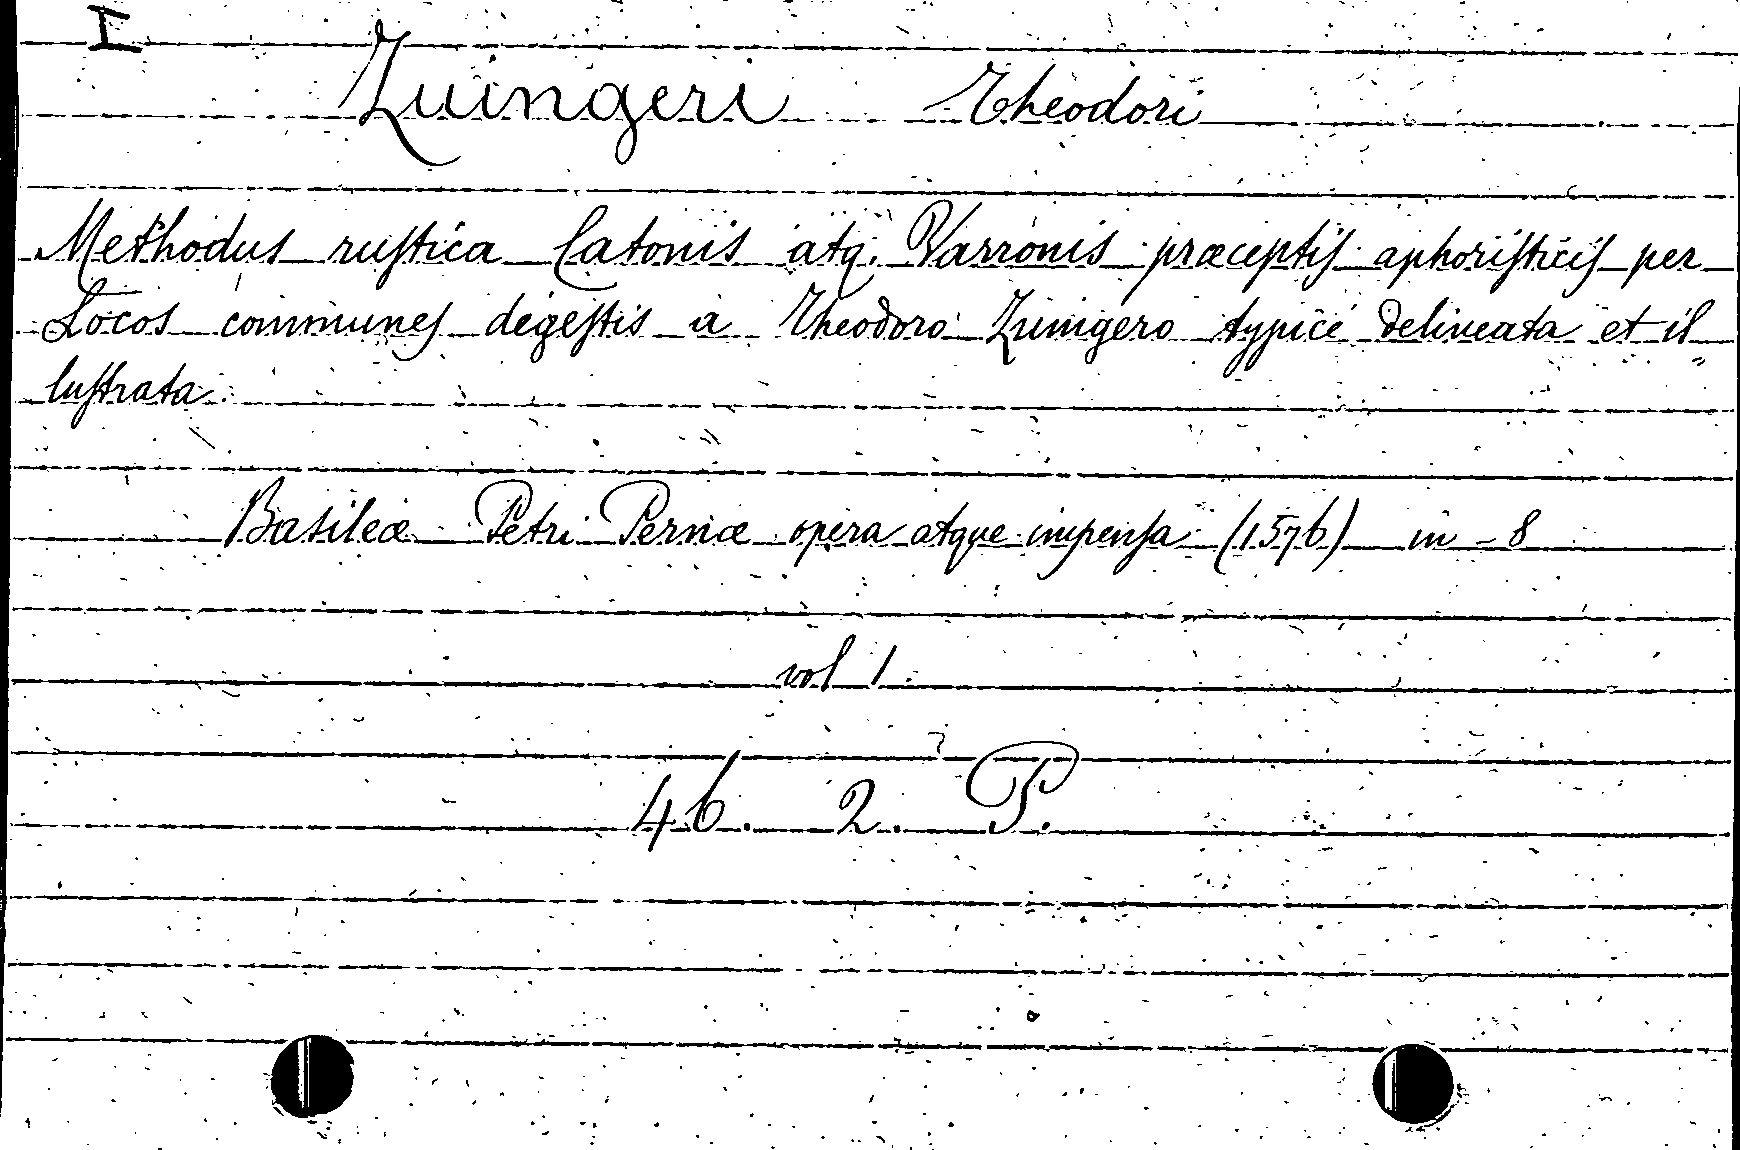 I
Zuingeri Theodori
Methodus ruſtica Catonis atq. Varronis præceptiſ aphoriſticiſ per
Locos communeſ digeſtis a Theodoro Zuinigero typice delineata et il
luſtrata
Basileæ Petri Pernæ opera atque impenſa (1576) in-8
vol 1.
46. 2. P.